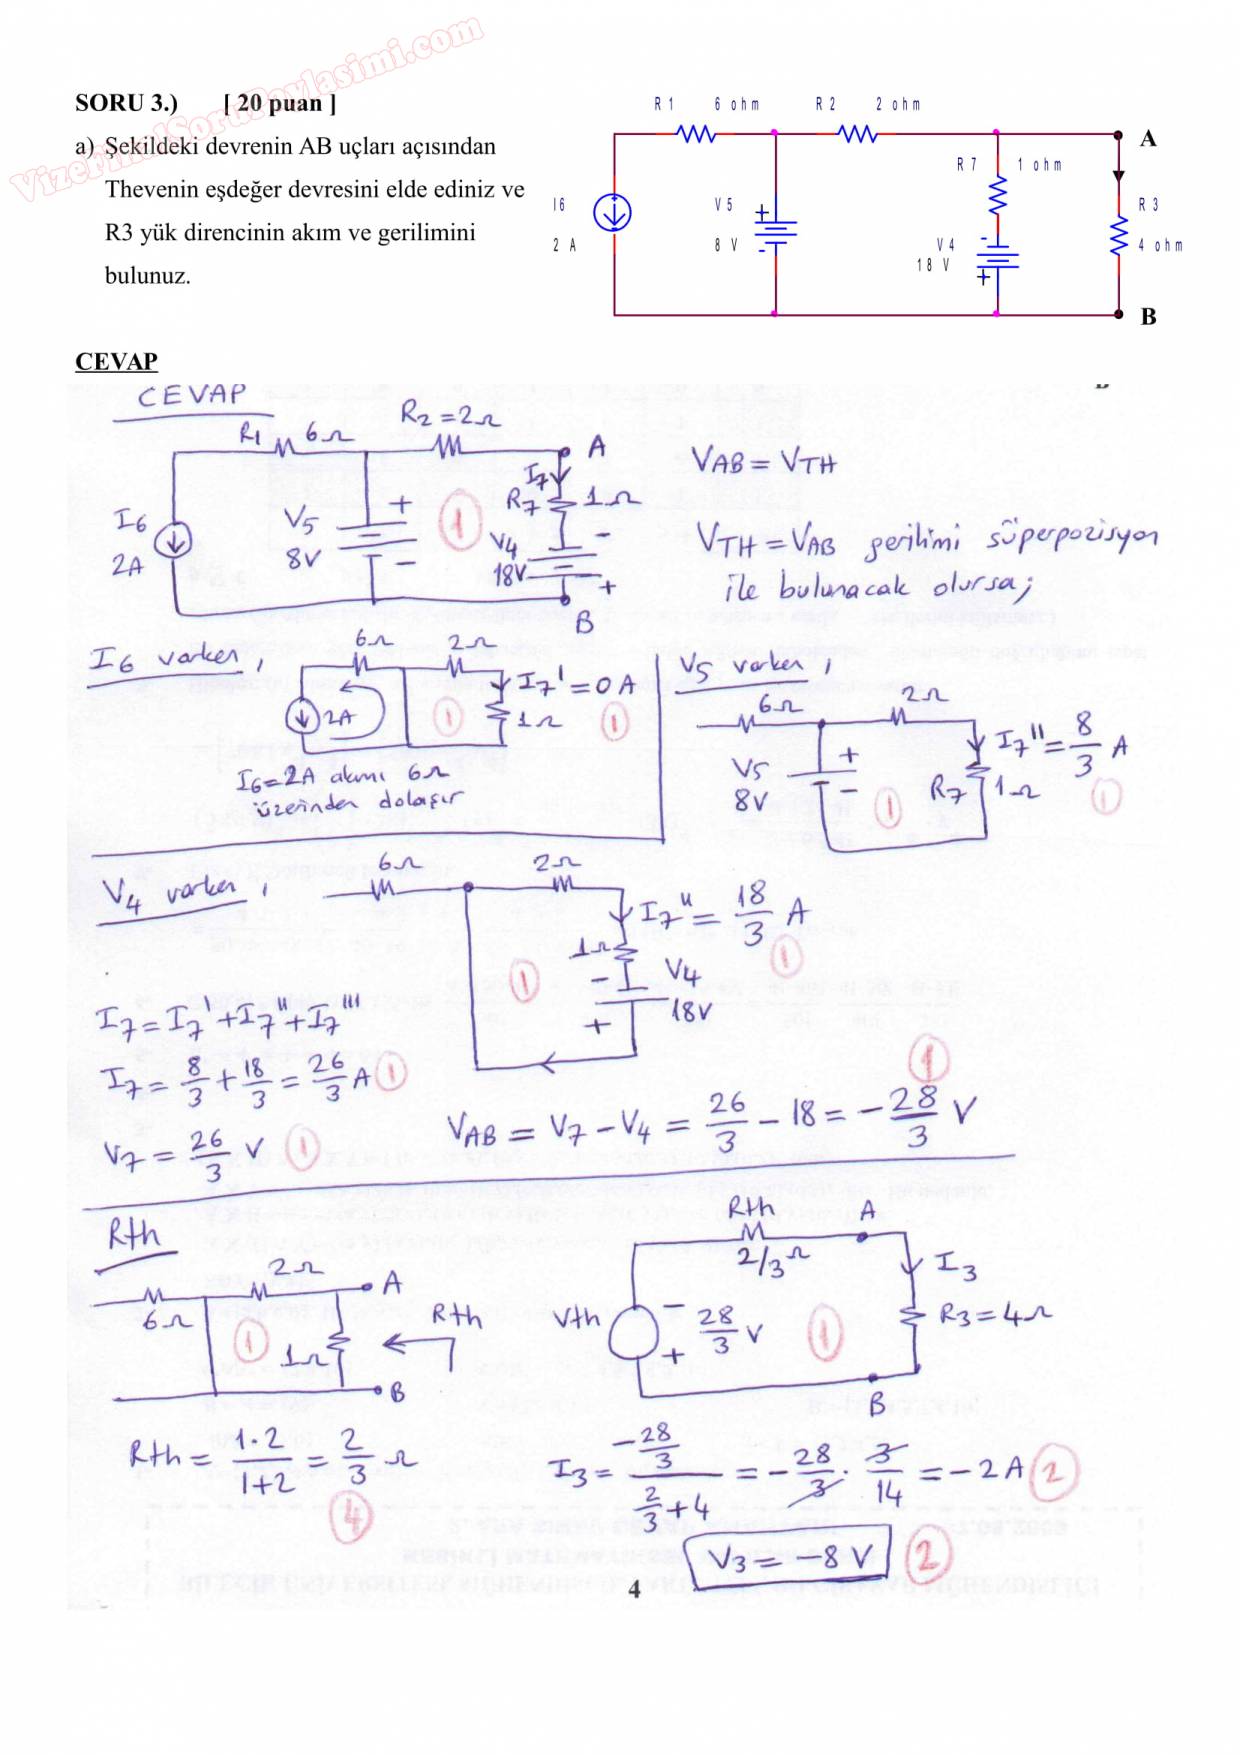 VizeFinalSoruPaylasimi.com
SORU 3.) [ 20 puan ]
a) Şekildeki devrenin AB uçları açısından
Thevenin eşdeğer devresini elde ediniz ve
R3 yük direncinin akım ve gerilimini
bulunuz.
R1 6 ohm R2 2 ohm
A
R7 1 ohm
I6 V5 R3
+ -
2 A 8 V V4 4 ohm
- 18 V
+
B
CEVAP
CEVAP
R1 6Ω R2=2Ω
A
I7
R7 1Ω
I6 V5 +
2A 8V - V4 -
18V +
B
1
VAB = VTH
VTH = VAB gerilimi süperpozisyon
ile bulunacak olursa;
I6 varken,
6Ω 2Ω
2A I7' = 0 A
1 1Ω 1
I6=2A akımı 6Ω
üzerinden dolaşır
V5 varken,
6Ω 2Ω
V5 + I7'' = 8/3 A
8V - R7 1Ω
1 1
V4 varken,
6Ω 2Ω
I7'' = 18/3 A
1Ω 1
1 - V4
+ 18V
I7 = I7 + I7'' + I7'''
I7 = 8/3 + 18/3 = 26/3 A 1
V7 = 26/3 V 1
1
VAB = V7 - V4 = 26/3 - 18 = -28/3 V
Rth
2Ω A
6Ω
1 1Ω Rth
B
Rth = 1·2/1+2 = 2/3 Ω
4
Rth A
2/3 Ω
I3
Vth 28/3 V 1 R3=4Ω
+
B
I3 = -28/3 / 2/3+4 = -28/3 · 3/14 = -2 A 2
V3 = -8 V 2
4